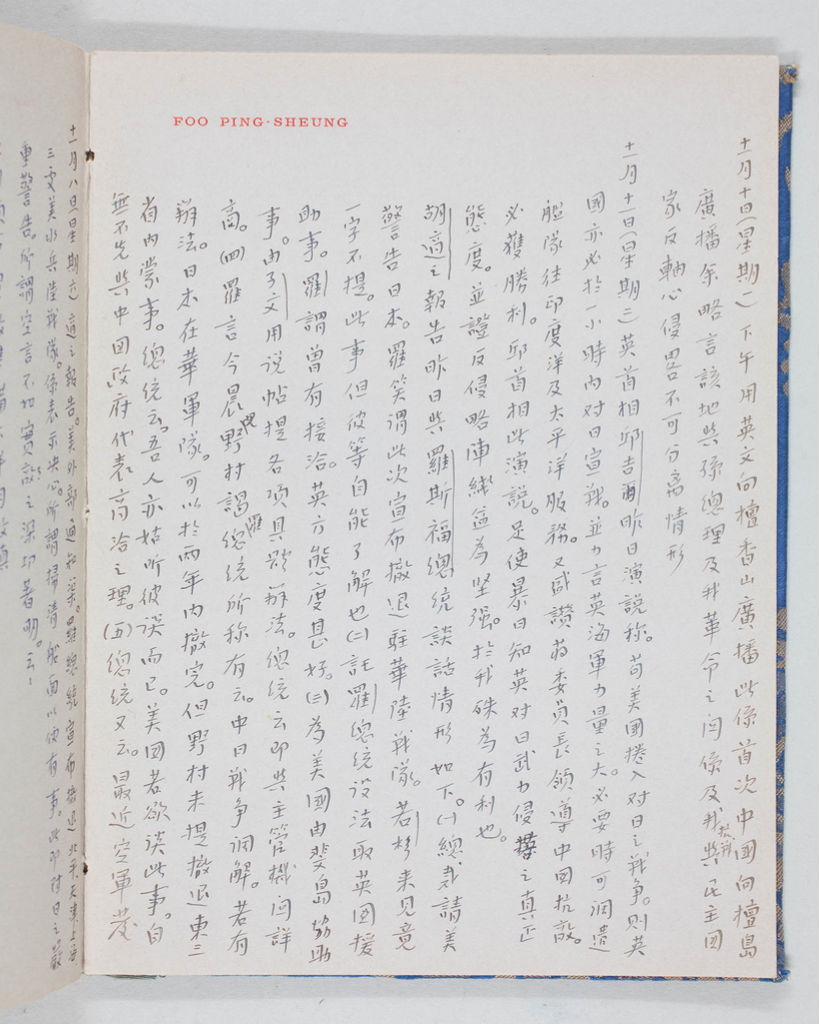 FOO PING-SHEUNG
十一月十日(星期一)下午用英文向檀香山廣播此係首次中國向檀島
廣播余略言該地與孫總理及我革命之關係及我抗戰與民主國
家反軸心侵略不可分离情形
十一月十一日(星期二)英首相邱吉爾昨日演說称。苟美國捲入对日之戰争。則英
國亦必於一小時內对日宣戰。並力言英海軍力量之大。必要時可調遣
艦隊往印度洋及太平洋服務。又盛讚蒋委員長領導中國抗敵。
必獲勝利。邱首相此演說。足使暴日知英对日武力侵華之真正
態度。並證反侵略陣綫益為坚强。於我殊為有利也。
胡適之報告昨日與羅斯福總統談話情形如下。(一)總裁請美
警告日本。羅笑謂此次宣布撤退駐華陸戰隊。若杉来見竟
一字不提。此事但彼等自能了解也(二)託羅總統設法取英国援
助事。羅謂曾有接洽。英方態度甚好。(三)為美國由斐島協助
事。由子文用说帖提各項具體辦法。總統云即與主管機関詳
商。(四)羅言今晨野村謁羅總統所称有云。中日戰争調解。若有
辦法。日本在華軍隊。可以於兩年內撤完。但野村未提撤退東三
省內蒙事。總統云吾人亦姑听彼談而已。美國若欲談此事。自
無不先與中国政府代表商洽之理。(五)總統又云。最近空軍發
十一月八日星期六 適之報告。美外部通知渠。羅總統宣布撤退北平天津上海
三處美水兵陸戰隊。係表示决心。所謂掃清船面以便有事。此即对日之嚴
重警告。所謂空言不如實敵之深切著明。云云